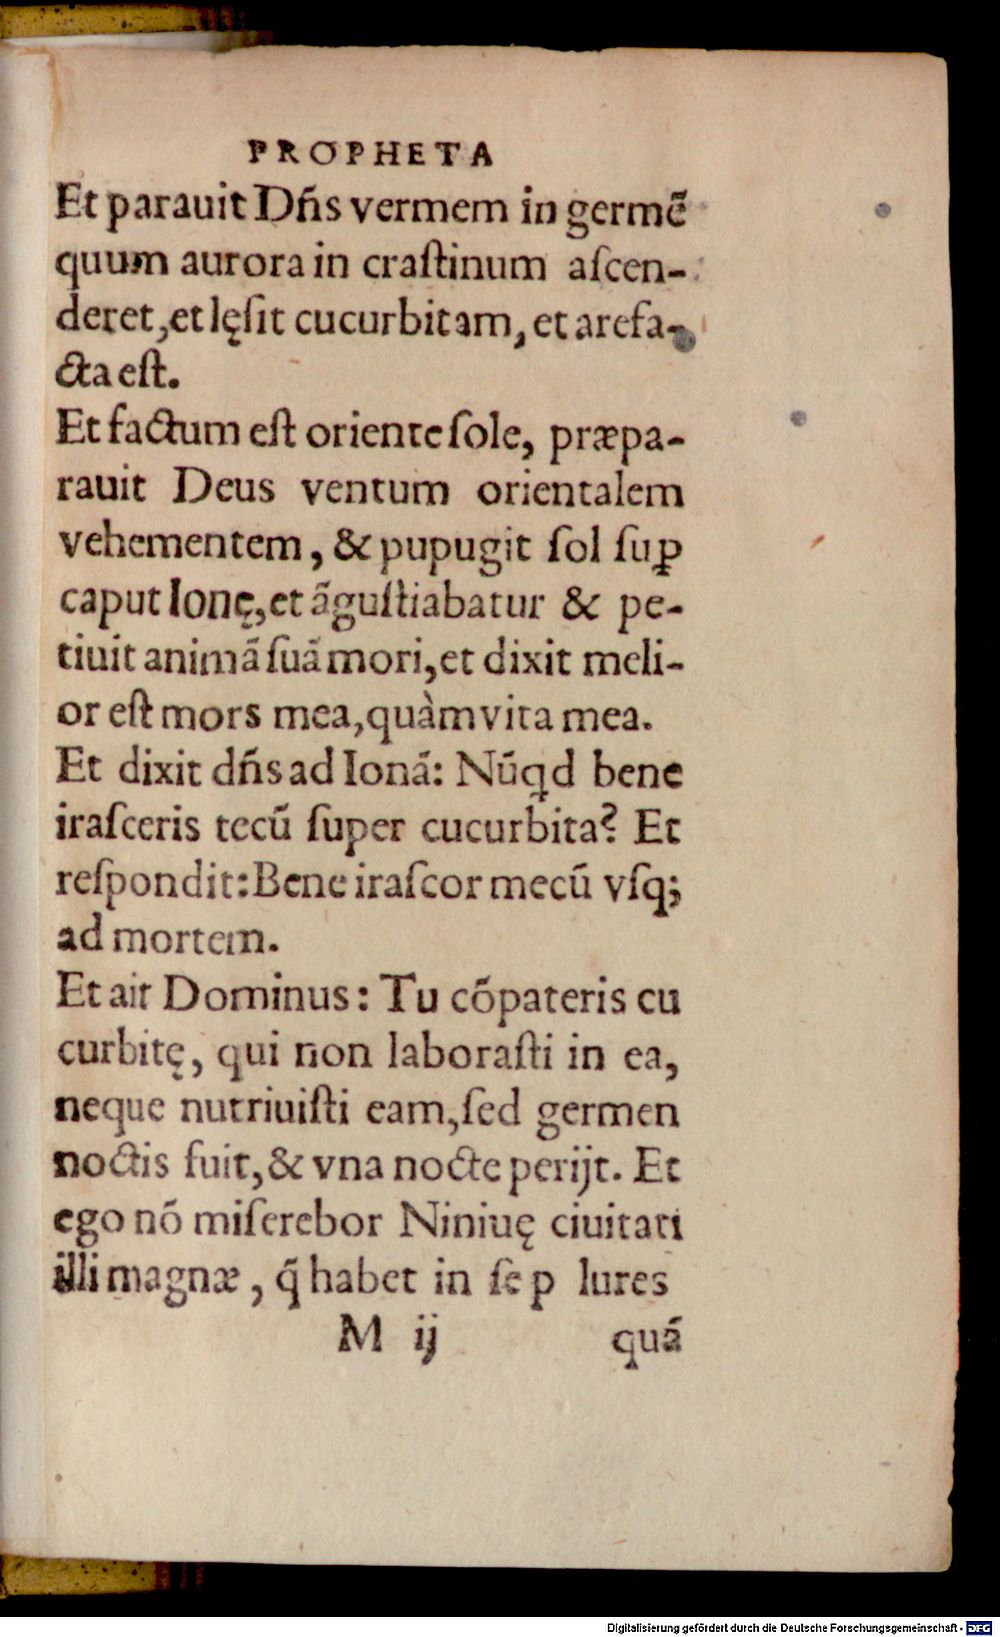 PROPHETA
Et parauit Dn̄s vermem in germē
quum aurora in craſtinum aſcen-
deret, et lęſit cucurbitam, et arefa-
cta eſt.
Et factum eſt oriente ſole, præpa-
rauit Deus ventum orientalem
vehementem, & pupugit ſol ſuꝑ
caput Ionę, et āguſtiabatur & pe-
tiuit animā ſuā mori, et dixit meli-
or eſt mors mea, quàm vita mea.
Et dixit dn̄s ad Ionā: Nūꝗd bene
iraſceris tecū ſuper cucurbita? Et
reſpondit: Bene iraſcor mecū vſq;
ad mortem.
Et ait Dominus: Tu cōpateris cu
curbitę, qui non laboraſti in ea,
neque nutriuiſti eam, ſed germen
noctis fuit, & vna nocte perijt. Et
ego nō miſerebor Niniuę ciuitati
illi magnæ, q̄ habet in ſe p lures
M ij quā
Digitalisierung gefördert durch die Deutsche Forschungsgemeinschaft - DFG